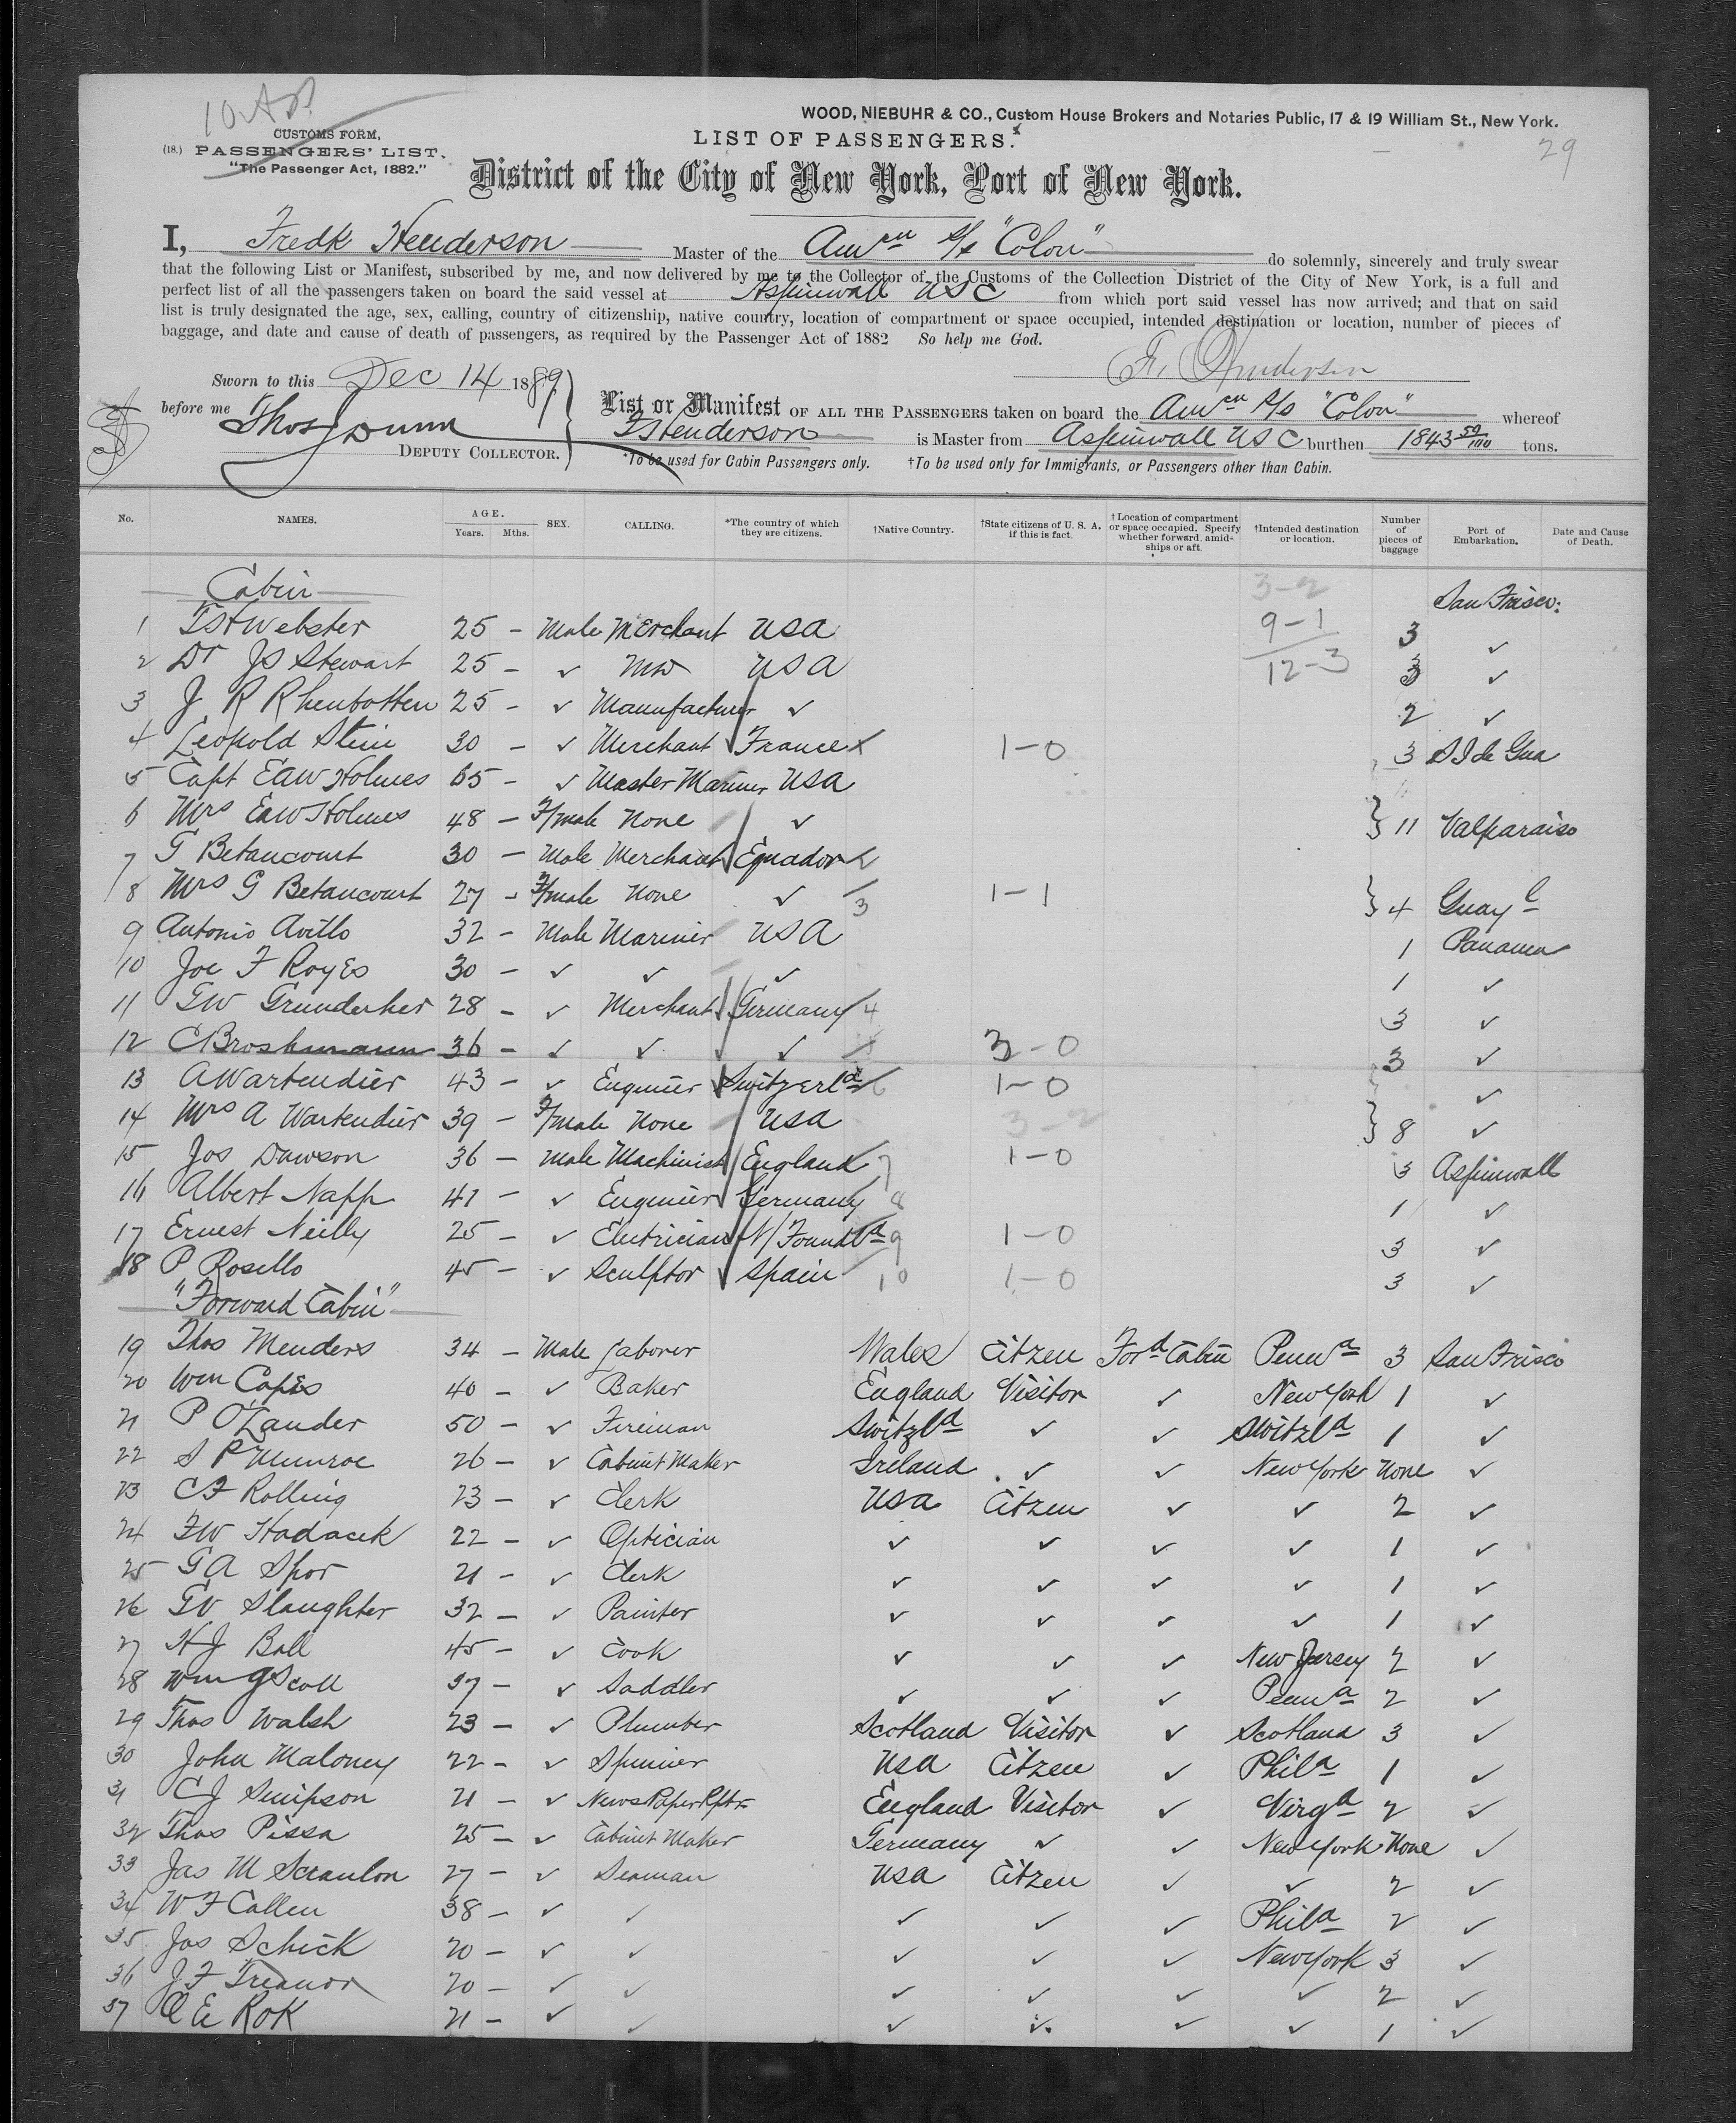 10 Ap
WOOD, NIEBUHR & CO., Custom House Brokers and Notaries Public, 17 & 19 William St., New York.
29
CUSTOMS FORM,
(18.) PASSENGERS' LIST.
"The Passenger Act, 1882."
LIST OF PASSENGERS.
District of the City of New York, Port of New York.
I, Fredk Henderson Master of the Amcn S/s "Colon" do solemnly, sincerely and truly swear
that the following List or Manifest, subscribed by me, and now delivered by me to the Collector of the Customs of the Collection District of the City of New York, is a full and
perfect list of all the passengers taken on board the said vessel at Aspinwall USC from which port said vessel has now arrived; and that on said
list is truly designated the age, sex, calling, country of citizenship, native country, location of compartment or space occupied, intended destination or location, number of pieces of
baggage, and date and cause of death of passengers, as required by the Passenger Act of 1882 So help me God.
F. Henderson
Sworn to this Dec 14 1889
before me Thos J Dunn
DEPUTY COLLECTOR.
List or Manifest OF ALL THE PASSENGERS taken on board the Amcn S/s "Colon" whereof
F Henderson is Master from Aspinwall USC burthen 1843 59/100 tons.
*To be used for Cabin Passengers only. †To be used only for Immigrants, or Passengers other than Cabin.
No. NAMES. AGE. Years. Mths. SEX. CALLING. *The country of which they are citizens. †Native Country. †State citizens of U. S. A. if this is fact. †Location of compartment or space occupied. Specify whether forward, amidships or aft. †Intended destination or location. Number of pieces of baggage Port of Embarkation. Date and Cause of Death.
Cabin 3-2 San Frisco:
1 Webster 25 - Male Merchant USA 9-1 3 ✓
2 Dr JS Stewart 25 - ✓ MD USA 12-3 3 ✓
3 J R Rhenbotten 25 - ✓ Manufacturer ✓ 2 ✓
4 Leopold Stein 30 - ✓ Merchant France X 1-0 3 S J de Gua
5 Capt EAW Holmes 65 - ✓ Master Mariner USA
6 Mrs EAW Holmes 48 - F/male None ✓ } 11 Valparaiso
7 G Betancourt 30 - Male Merchant Equador 2
8 Mrs G Betancourt 27 - F/male None ✓ 3 1-1 } 4 Guayl
9 Antonio Avillo 32 - Male Mariner USA 1 Panama
10 Joe F Royes 30 - ✓ ✓ ✓ 1 ✓
11 GW Grunderher 28 - ✓ Merchant Germany 4 3 ✓
12 C Broshmann 36 - ✓ ✓ ✓ 3-0 3 ✓
13 A Wartendier 43 - ✓ Enginier Switzerld 6 1-0 ✓
14 Mrs A Wartendier 39 - F/male None USA 3-2 } 8 ✓
15 Jos Dawson 36 - Male Machinist England 7 1-0 3 Aspinwall
16 Albert Napp 41 - ✓ Enginier Germany 8 1 ✓
17 Ernest Neilly 25 - ✓ Electrician N/Foundld 9 1-0 3 ✓
18 P Rosello 45 - ✓ Sculptor Spain 10 1-0 3 ✓
"Forward Cabin"
19 Thos Menders 34 - Male Laborer Wales Citzen Ford Cabin Penna 3 San Frisco
20 Wm Capis 40 - ✓ Baker England Visitor ✓ New York 1 ✓
21 P O'Lander 50 - ✓ Fireman Switzld ✓ ✓ Switzld 1 ✓
22 S P Munroe 26 - ✓ Cabinet Maker Ireland ✓ ✓ New York None ✓
23 CF Rolling 23 - ✓ Clerk USA Citzen ✓ ✓ 2 ✓
24 FW Hadacek 22 - ✓ Optician ✓ ✓ ✓ ✓ 1 ✓
25 G A Spor 21 - ✓ Clerk ✓ ✓ ✓ ✓ 1 ✓
26 GV Slaughter 32 - ✓ Painter ✓ ✓ ✓ ✓ 1 ✓
27 HJ Ball 45 - ✓ Cook ✓ ✓ ✓ New Jersey 2 ✓
28 Wm G Scoll 37 - ✓ Saddler ✓ ✓ ✓ Penna 2 ✓
29 Thos Walsh 23 - ✓ Plumber Scotland Visitor ✓ Scotland 3 ✓
30 John Maloney 22 - ✓ Spinner USA Citzen ✓ Phila 1 ✓
31 CJ Simpson 21 - ✓ News Paper Rptr England Visitor ✓ Virga 2 ✓
32 Thos Pissa 25 - ✓ Cabinet Maker Germany ✓ ✓ New York None ✓
33 Jas M Scanlon 27 - ✓ Seaman USA Citzen ✓ ✓ 2 ✓
34 WF Callen 38 - ✓ ✓ ✓ ✓ ✓ Phila 2 ✓
35 Jos Schick 20 - ✓ ✓ ✓ ✓ ✓ New York 3 ✓
36 JF Treanor 20 - ✓ ✓ ✓ ✓ ✓ ✓ 2 ✓
37 C E Rok 21 - ✓ ✓ ✓ ✓ ✓ ✓ 1 ✓